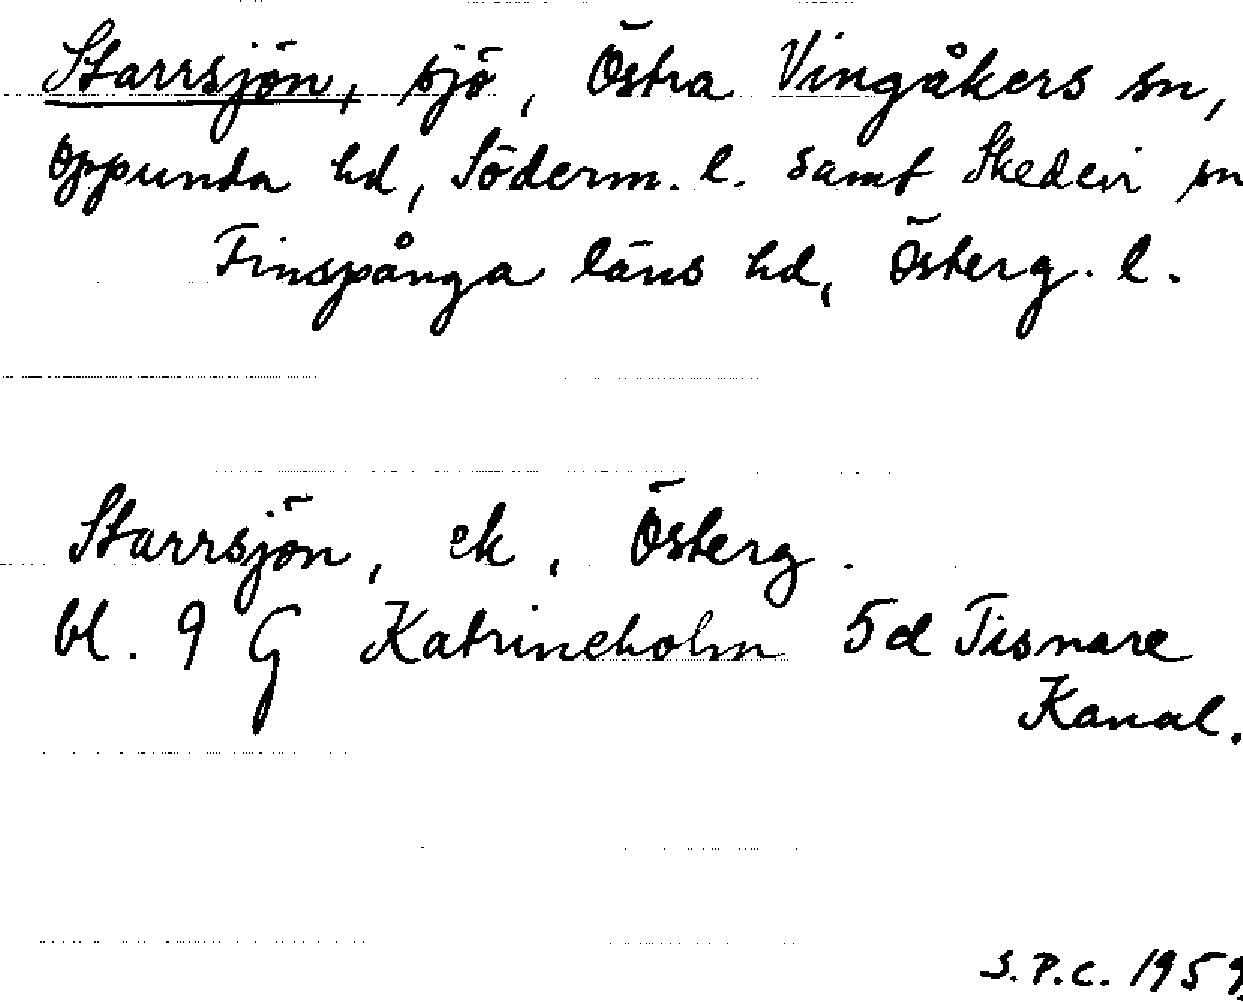 Starrsjön, sjö, Östra Vingåkers sn,
Oppunda hd, Söderm. l. samt Skedevi sn
Finspånga läns hd, Österg. l.
Starrsjön, ek, Österg.
bl. 9 G Katrineholm 5d Tisnare
Kanal.
S.P.C. 1959